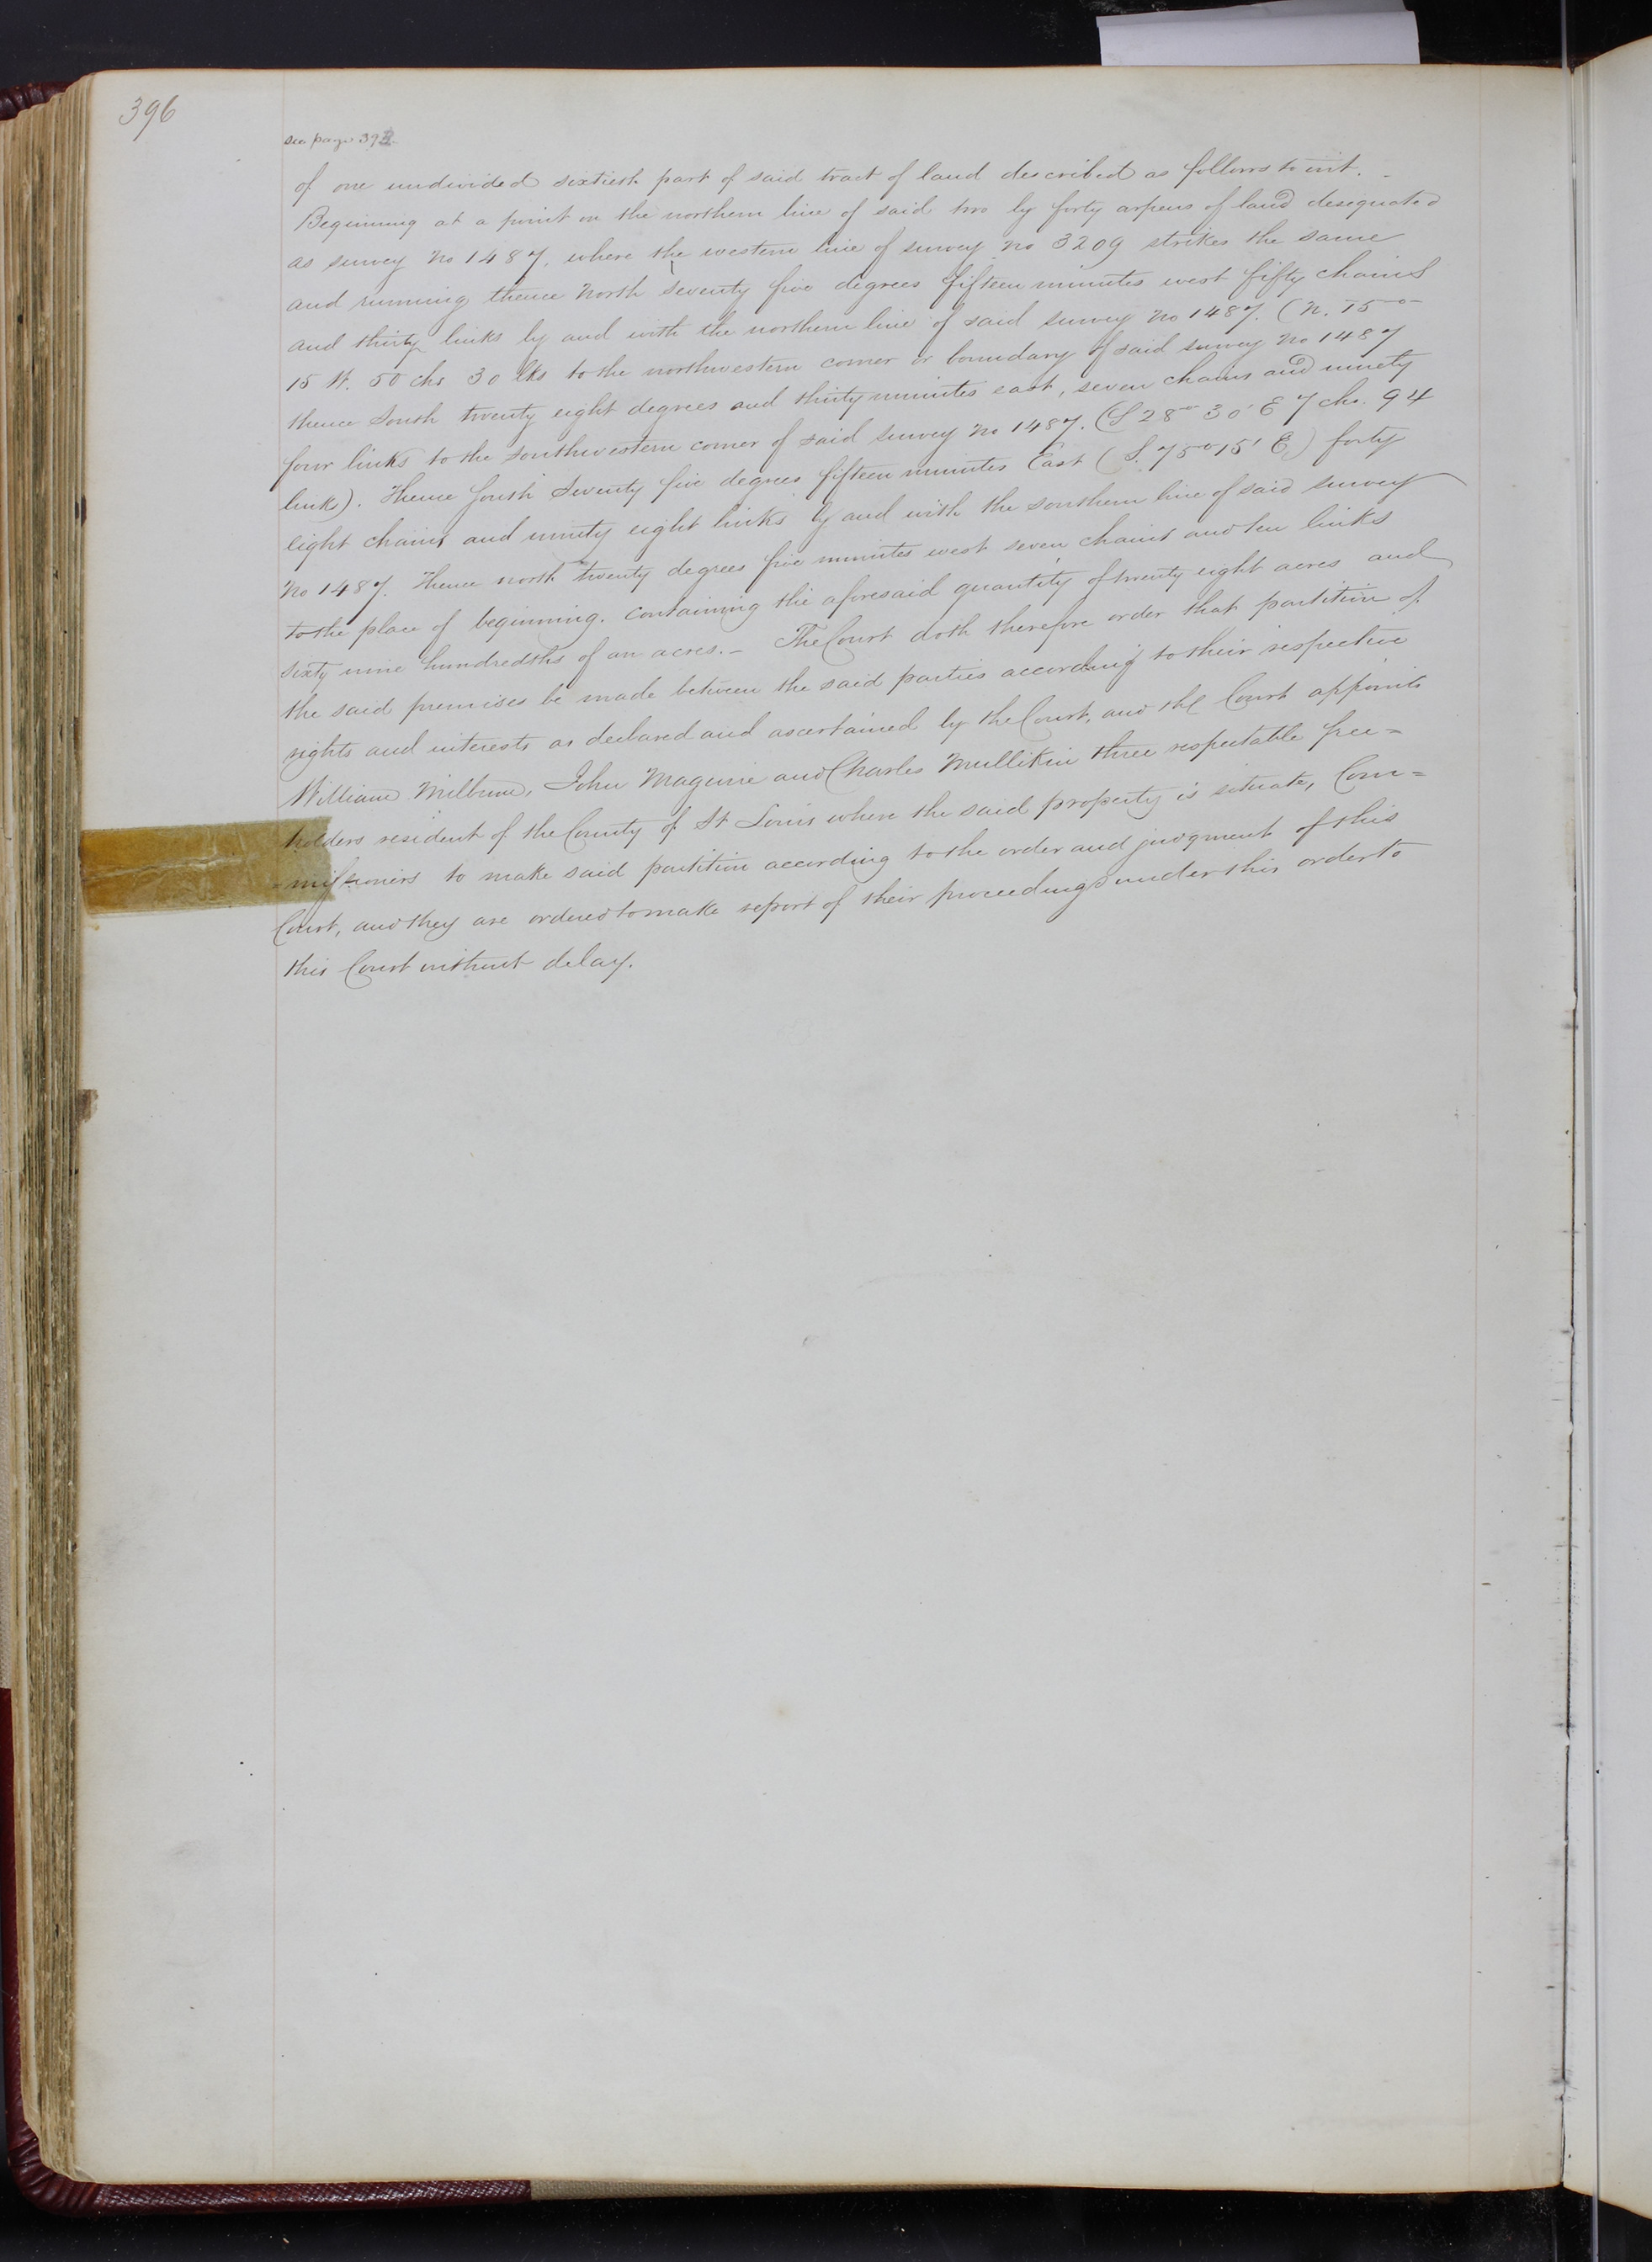 396
see page 393
of one undivided sixtieth part of said tract of land described as follows to wit. -
Beginning at a point on the northern line of said two by forty arpens of land designated
as survey No 1487, where the western line of survey no 3209 strikes the same
and running thence North seventy five degrees fifteen minutes west fifty chains
and thirty links by and with the northern line of said survey No 1487. (N. 75°
15 W. 50 chs 30 lks to the northwestern corner or boundary of said survey No 1487
thence South twenty eight degrees and thirty minutes east, seven chains and ninety
four links to the Southwestern corner of said survey No 1487. (S 28° 30' E 7 chs. 94
links). Thence South Seventy five degrees fifteen minutes East (S. 75° 15' E.) forty
eight chains and ninety eight links by and with the southern line of said survey
No 1487. Thence north twenty degrees five minutes west seven chains and ten links
to the place of beginning. Containing the aforesaid quantity of twenty eight acres and
sixty nine hundredths of an acres. - The Court doth therefore order that partition of
the said premises be made between the said parties according to their respective
rights and interests as declared and ascertained by the Court, and the Court appoints
William Milburn, John Maguire and Charles Mullikin three respectable free=
holders resident of the County of St Louis where the said property is situate, Com=
=missioners to make said partition according to the order and judgment of this
Court, and they are ordered to make report of their proceedings under this order to
this Court without delay.